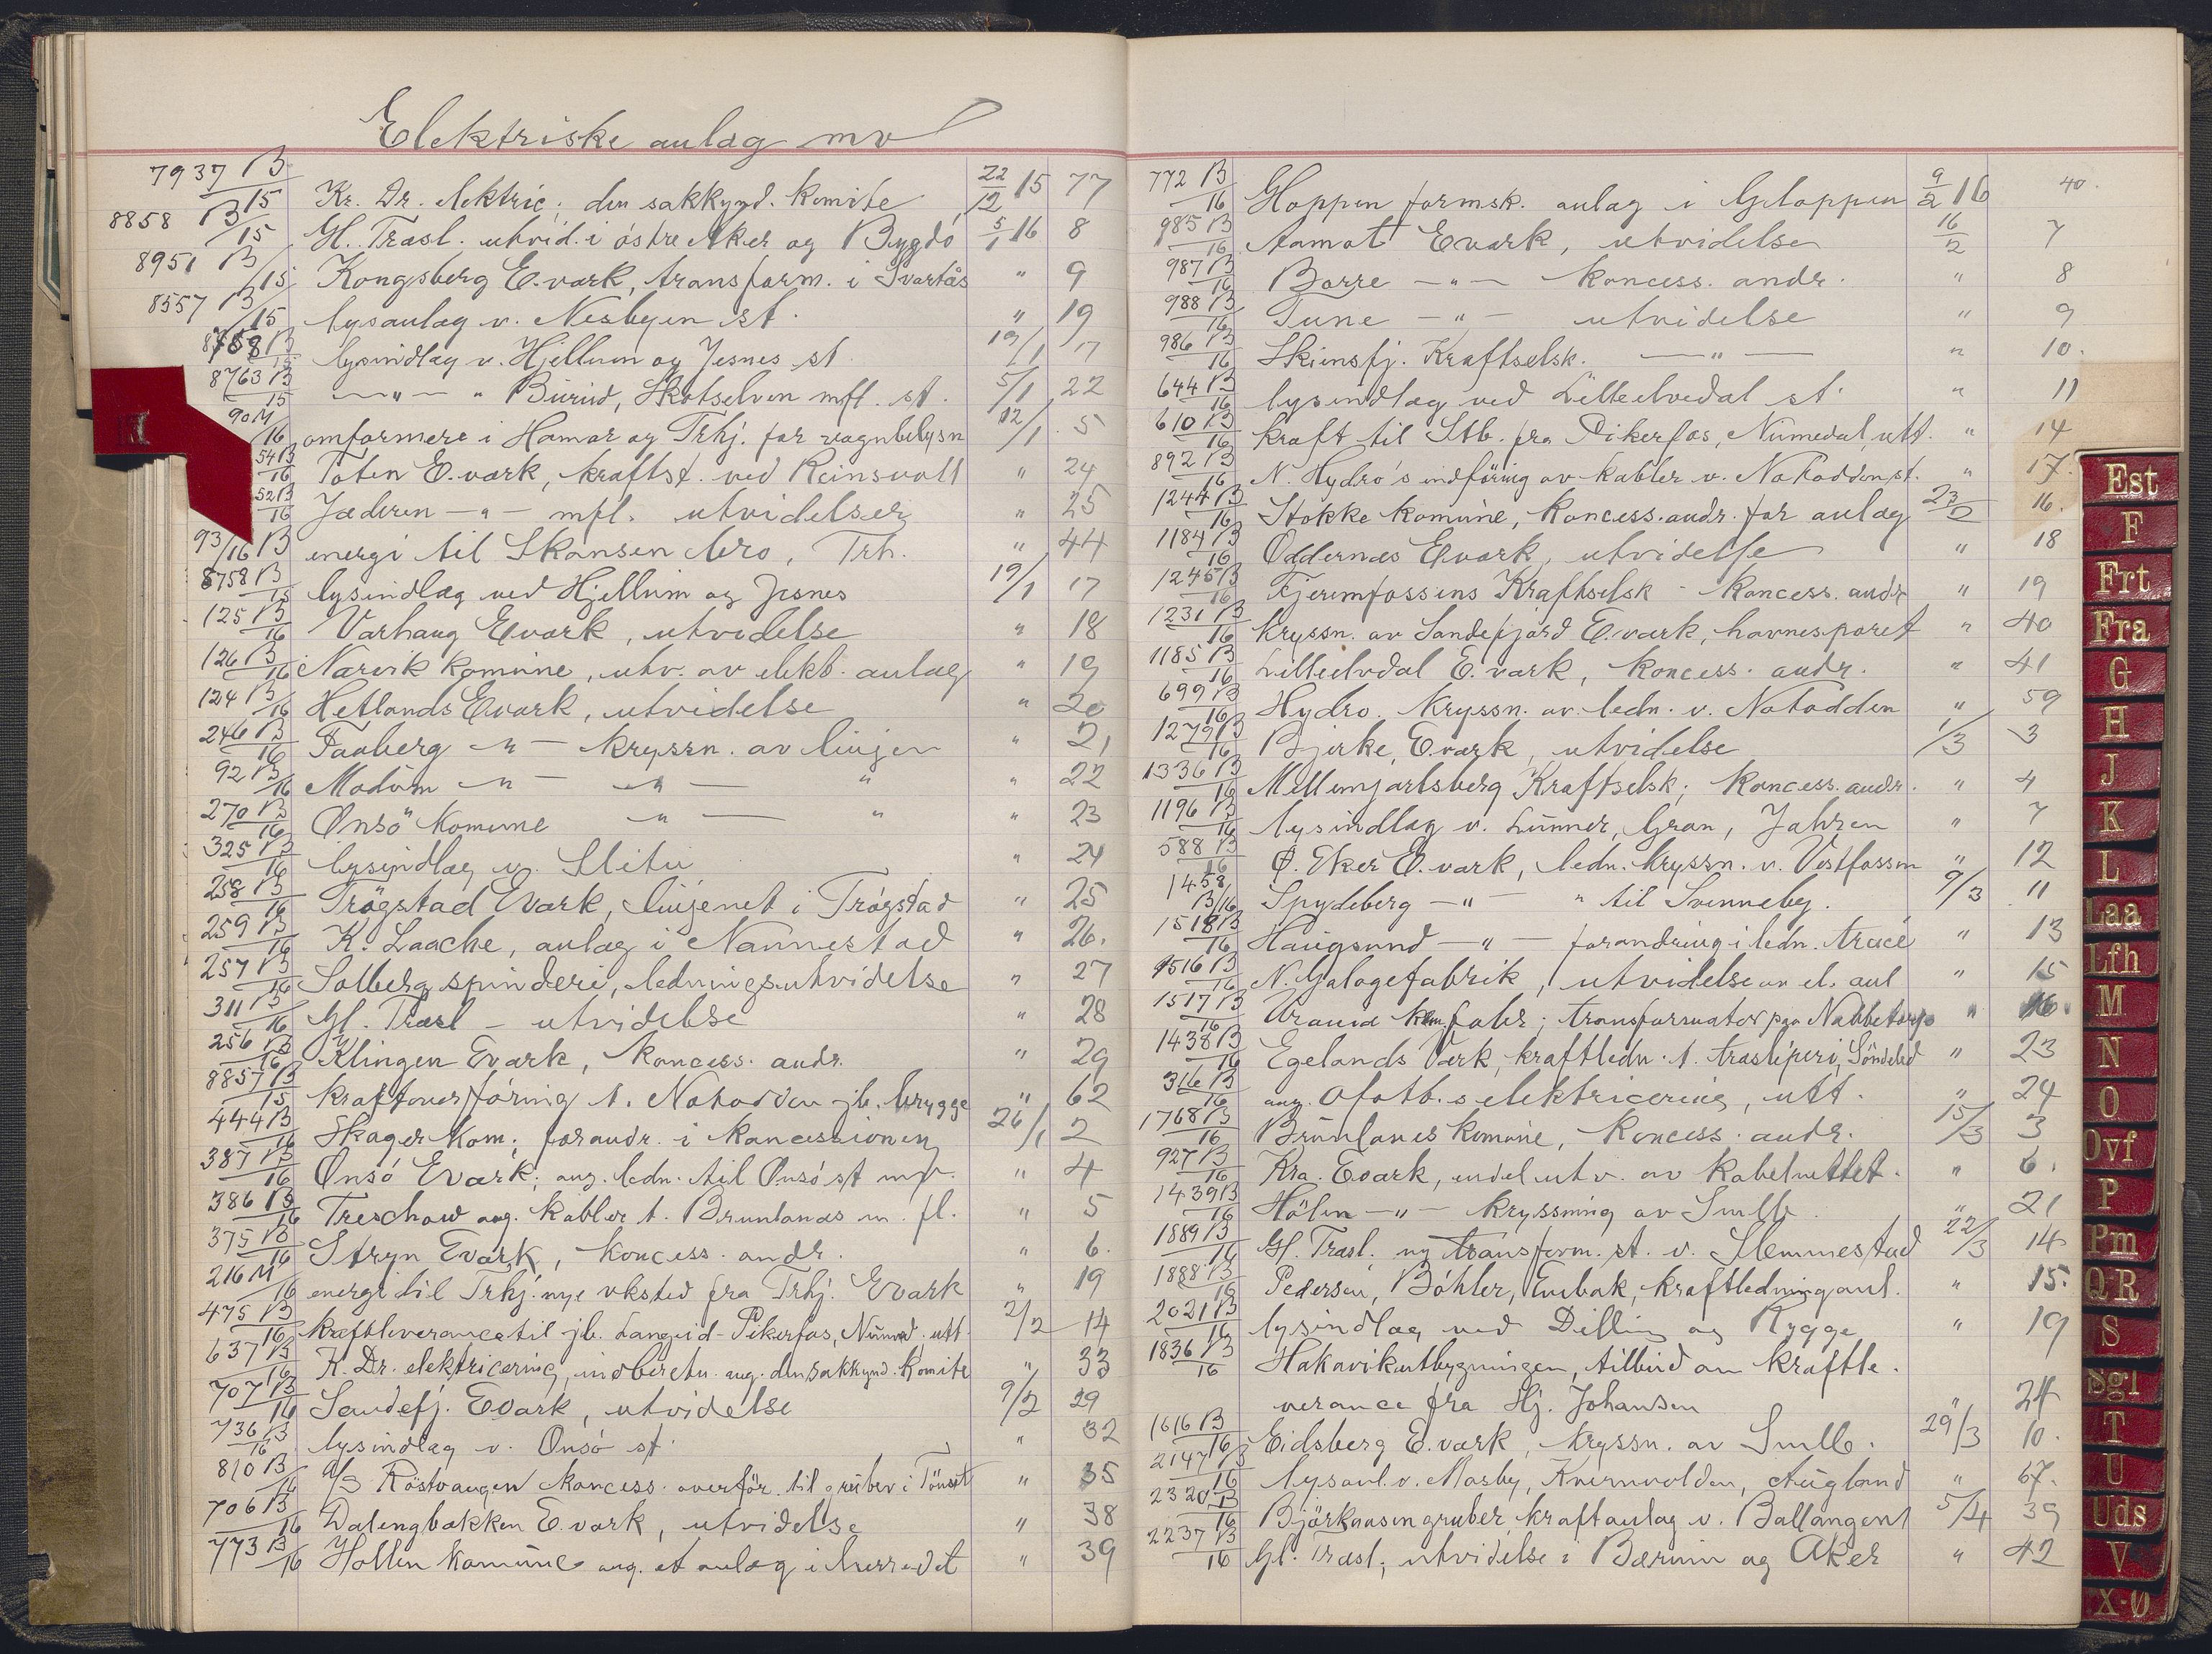 Elektriske anlæg mv
7937 B/15 Kr. Dr. elektric; den sakkynd. komite 22/12 15 77
8858 B/15 Gl. Træsl. utvid. i östre Aker og Bygdö 5/1 16 8
8951 B/15 Kongsberg E.værk, transform. i Svartås " 9
8557 B/15 lysanlæg v. Nesbyen st. " 19
8758 B/15 lysindlæg v. Hjellum og Jesnes st 19/1 17
8763 B/15 —"— " Burud, Skotselven mfl. st. 5/1 22
90 M/16 omformere i Hamar og Trhj. for vognbelysn 12/1 5
54 B/16 Toten E.værk, kraftst. ved Reinsvoll " 24
52 B/16 Jæderen —"— mfl. utvidelser " 25
93/16 B energi til Skansen bro, Trh. " 44
8758 B/15 lysindlæg ved Hjellum og Jesnes 19/1 17
125 B/16 Varhaug Eværk, utvidelse " 18
126 B/16 Narvik komune, utv. av elekt. anlæg " 19
124 B/16 Hetlands Eværk, utvidelse " 20
246 B/16 Faaberg —"— kryssn. av linjen " 21
92 B/16 Modum —"— —"— " " 22
270 B/16 Onsö komune —"— " " 23
325 B/16 lysindlæg v. Slitu " 24
258 B/16 Trögstad Eværk, linjenet i Trögstad " 25
259 B/16 K. Laache, anlæg i Nannestad " 26.
257 B/16 Solberg spinderi, ledningsutvidelse " 27
311 B/16 Gl. Træsl — utvidelse " 28
256 B/16 Klingen Eværk, koncess. andr. " 29
8857 B/15 kraftoverföring t. Notodden jb. brygge " 62
444 B/16 Skager kom; forandr. i koncessionen 26/1 2
387 B/16 Onsö Eværk; ang. ledn. til Onsö st mv. " 4
386 B/16 Treschow ang. kabler t. Brunlanæs m. fl. " 5
375 B/16 Stryn Eværk, koncess. andr. " 6.
216 M/16 energi til Trhj. nye vksted fra Trhj. Eværk " 19
475 B/16 kraftleverance til jb. Langeid - Pikerfos, Numed. utt. 2/2 14
637 B/16 K. Dr. elektricering, indberetn. ang. den sakkynd. komite " 33
707 B/16 Sandefj. Eværk, utvidelse 9/2 29
736 B/16 lysindlæg v. Onsö st. " 32
810 B/16 A/S Röstvangen koncess. overför. til gruber i Tönset " 35
706 B/16 Dalengbakken E.værk, utvidelse " 38
773 B/16 Hollen komune ang. et anlæg i herredet " 39
772 B/16 Gloppen formsk. anlæg i Gloppen 9/2 16 40.
985 B/16 Aamot Eværk, utvidelse 16/2 7
987 B/16 Borre —"— koncess. andr. " 8
988 B/16 Tune —"— utvidelse " 9
986 B/16 Skiensfj. Kraftselsk. —"— " 10.
644 B/16 lysindlæg ved Lilleelvedal st. " 11
610 B/16 kraft til Stb. fra Pikerfos, Numedal, utt. " 14
892 B/16 N. Hydro's indföring av kabler v. Notodden st. " 17.
1244 B/16 Stokke komune, koncess. andr. for anlæg 23/2 16.
1184 B/16 Oddernæs Eværk, utvidelse " 18
1245 B/16 Tjeremfossens Kraftselsk - koncess. andr " 19
1231 B/16 kryssn. av Sandefjord E.værk, havnesporet " 40
1185 B/16 Lilleelvdal E.værk, koncess. andr. " 41
699 B/16 Hydro. kryssn. av ledn. v. Notodden " 59
1279 B/16 Bjerke, E.værk, utvidelse 1/3 3
1336 B/16 Mellemjarlsberg Kraftselsk; koncess. andr. " 4
1196 B/16 lysindlæg v. Lunner, Gran, Jahren " 7
588 B/16 Ø. Eker E.værk, ledn. kryssn. v. Vestfossen " 12
1458 B/16 Spydeberg —"— " til Svenneby. 9/3 11
1518 B/16 Haugsund —"— forandring i ledn. tracé " 13
1516 B/16 N. Galogefabrik, utvidelse av el. anl " 15
1517 B/16 Vraned kem. fabr; transformator paa Nabbetorp " 16.
1438 B/16 Egelands Værk, kraftledn. t. træsliperi, Söndeled " 23
316 B/16 ang. Ofotb.s elektricering, utt. " 24
1768 B/16 Brunlanes komune, koncess. andr. 15/3 3
927 B/16 Kra. Eværk, endel utv. av kabelnettet. " 6.
1439 B/16 Hölen —"— kryssning av Smlb. " 21
1889 B/16 Gl. Træsl. ny transform. st. v. Slemmestad 22/3 14
1888 B/16 Pedersen, Böhler, Enebak, kraftledningsanl. " 15.
2021 B/16 lysindlæg ved Dilling og Rygge " 19
1836 B/16 Hakavikutbygningen, tilbud om kraftle-
verance fra Hj. Johansen " 24
1616 B/16 Eidsberg E.værk, kryssn. av Smlb. 29/3 10.
2147 B/16 lysanl. v. Mosby, Kvernvolden, Augland " 67.
2320 B/16 Björkaasen gruber, kraftanlæg v. Ballangen 5/4 39
2237 B/16 Gl. Træsl; utvidelse i Bærum og Aker " 42
Est
F
Frt
Fra
G
H
J
K
L
Laa
Lfh
M
N
O
Ovf
P
Pm
QR
S
Sgl
T
U
Uds
V
X-Ø